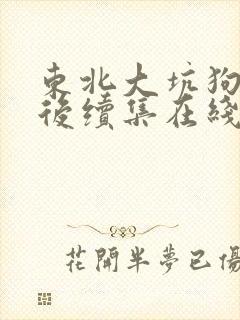 東北大坑狗
後續集在綫
花開半夢已傷